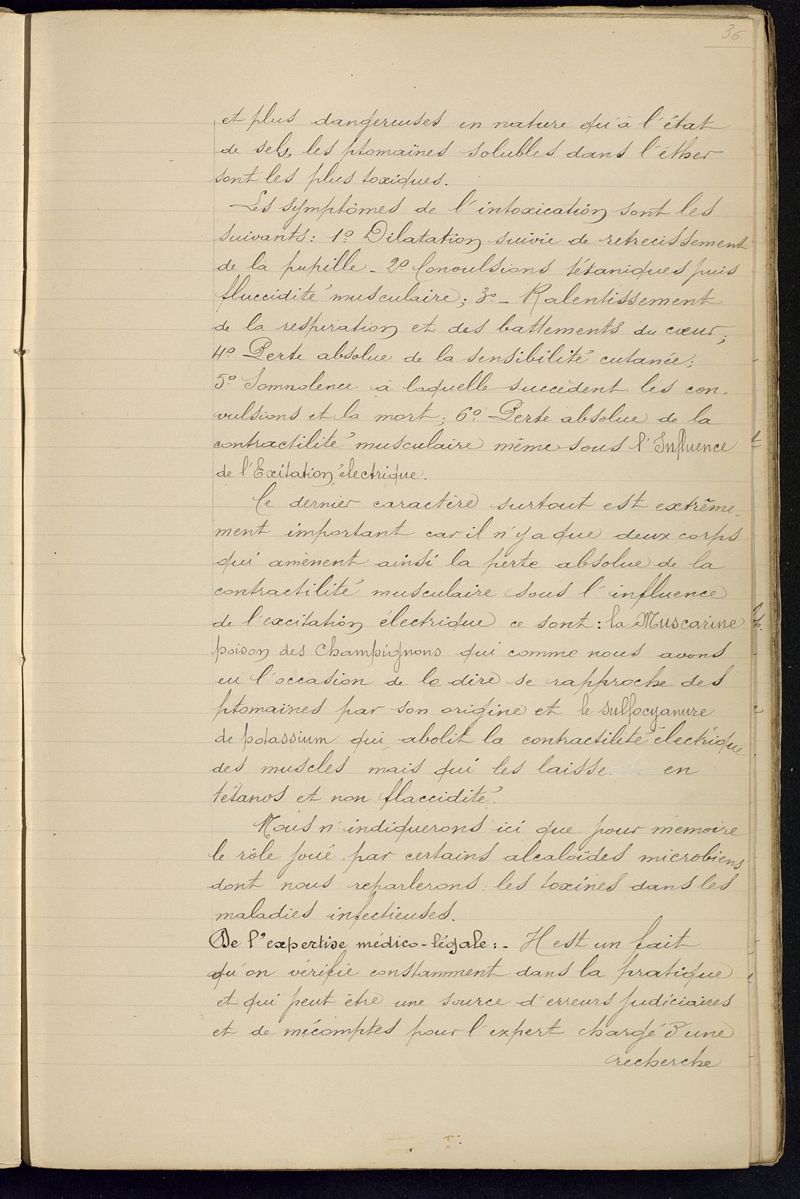 36
et plus dangereuses en nature qu'à l'état
de sels, les ptomaïnes solubles dans l'éther
sont les plus toxiques.
Les symptômes de l'intoxication sont les
suivants: 1º Dilatation suivie de retrecissement
de la pupille - 2º Convulsions tétaniques puis
fluccidité musculaire; 3º - Ralentissement
de la respiration et des battements du cœur;
4º Perte absolue de la sensibilité cutanée;
5º Somnolence à laquelle succèdent les con-
vulsions et la mort; 6º Perte absolue de la
contractilité musculaire même sous l'Influence
de l'Exitation électrique.
Ce dernier caractère surtout est extrême-
ment important car il n'y a que deux corps
qui amènent ainsi la perte absolue de la
contractilité musculaire sous l'influence
de l'excitation électrique ce sont: la Muscarine
poison des champignons qui comme nous avons
eu l'occasion de le dire se rapproche des
ptomaïnes par son origine et le sulfocyanure
de potassium qui abolit la contractilité électrique
des muscles mais qui les laisse en
tétanos et non flaccidité.
Nous n'indiquerons ici que pour mémoire
le rôle joué par certains alcaloïdes microbiens
dont nous reparlerons: les toxines dans les
maladies infectieuses.
De l'expertise médico-légale: - Il est un fait
qu'on vérifie constamment dans la pratique
et qui peut être une source d'erreurs judiciaires
et de mécomptes pour l'expert chargé d'une
recherche